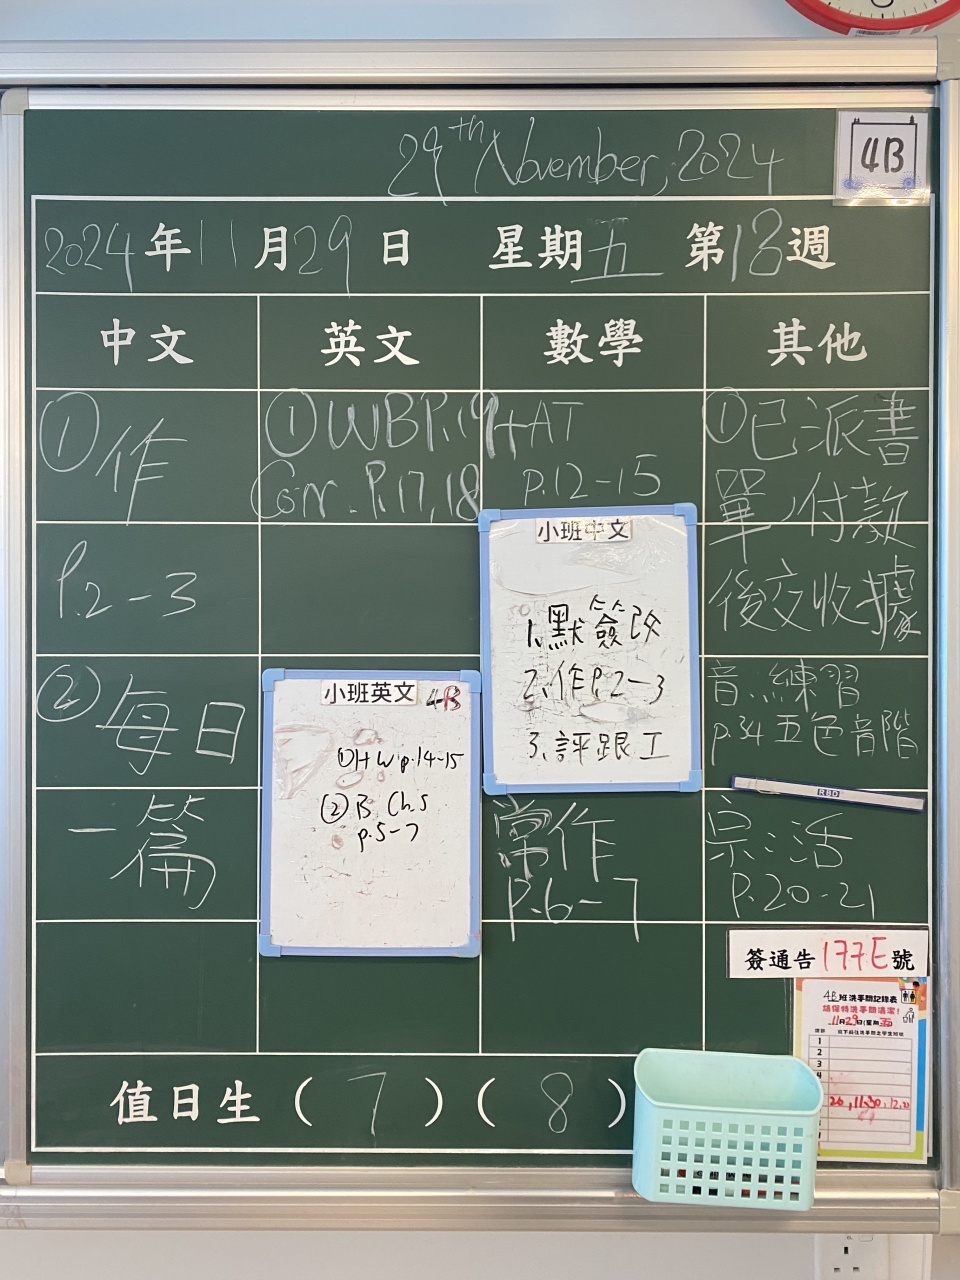 29th November, 2024
4B
2024年11月29日 星期五 第13週
中文 英文 數學 其他
①作
P.2-3
②每日
一篇
①WB P.19
Corr. P.17,18
小班英文 4B
①HW p.14-15
②B Ch.5
p.5-7
+AT
p.12-15
小班中文
1.默簽改
2.作P.2-3
3.評跟工
常作
P.6-7
①已派書
單,付款
後交收據
音.練習
p.34 五色音階
R8D
宗:活
P.20-21
簽通告177E號
4B班洗手間記錄表
請保持洗手間清潔!
11月29日(星期五)
1
2
3
4
值日生(7)(8)